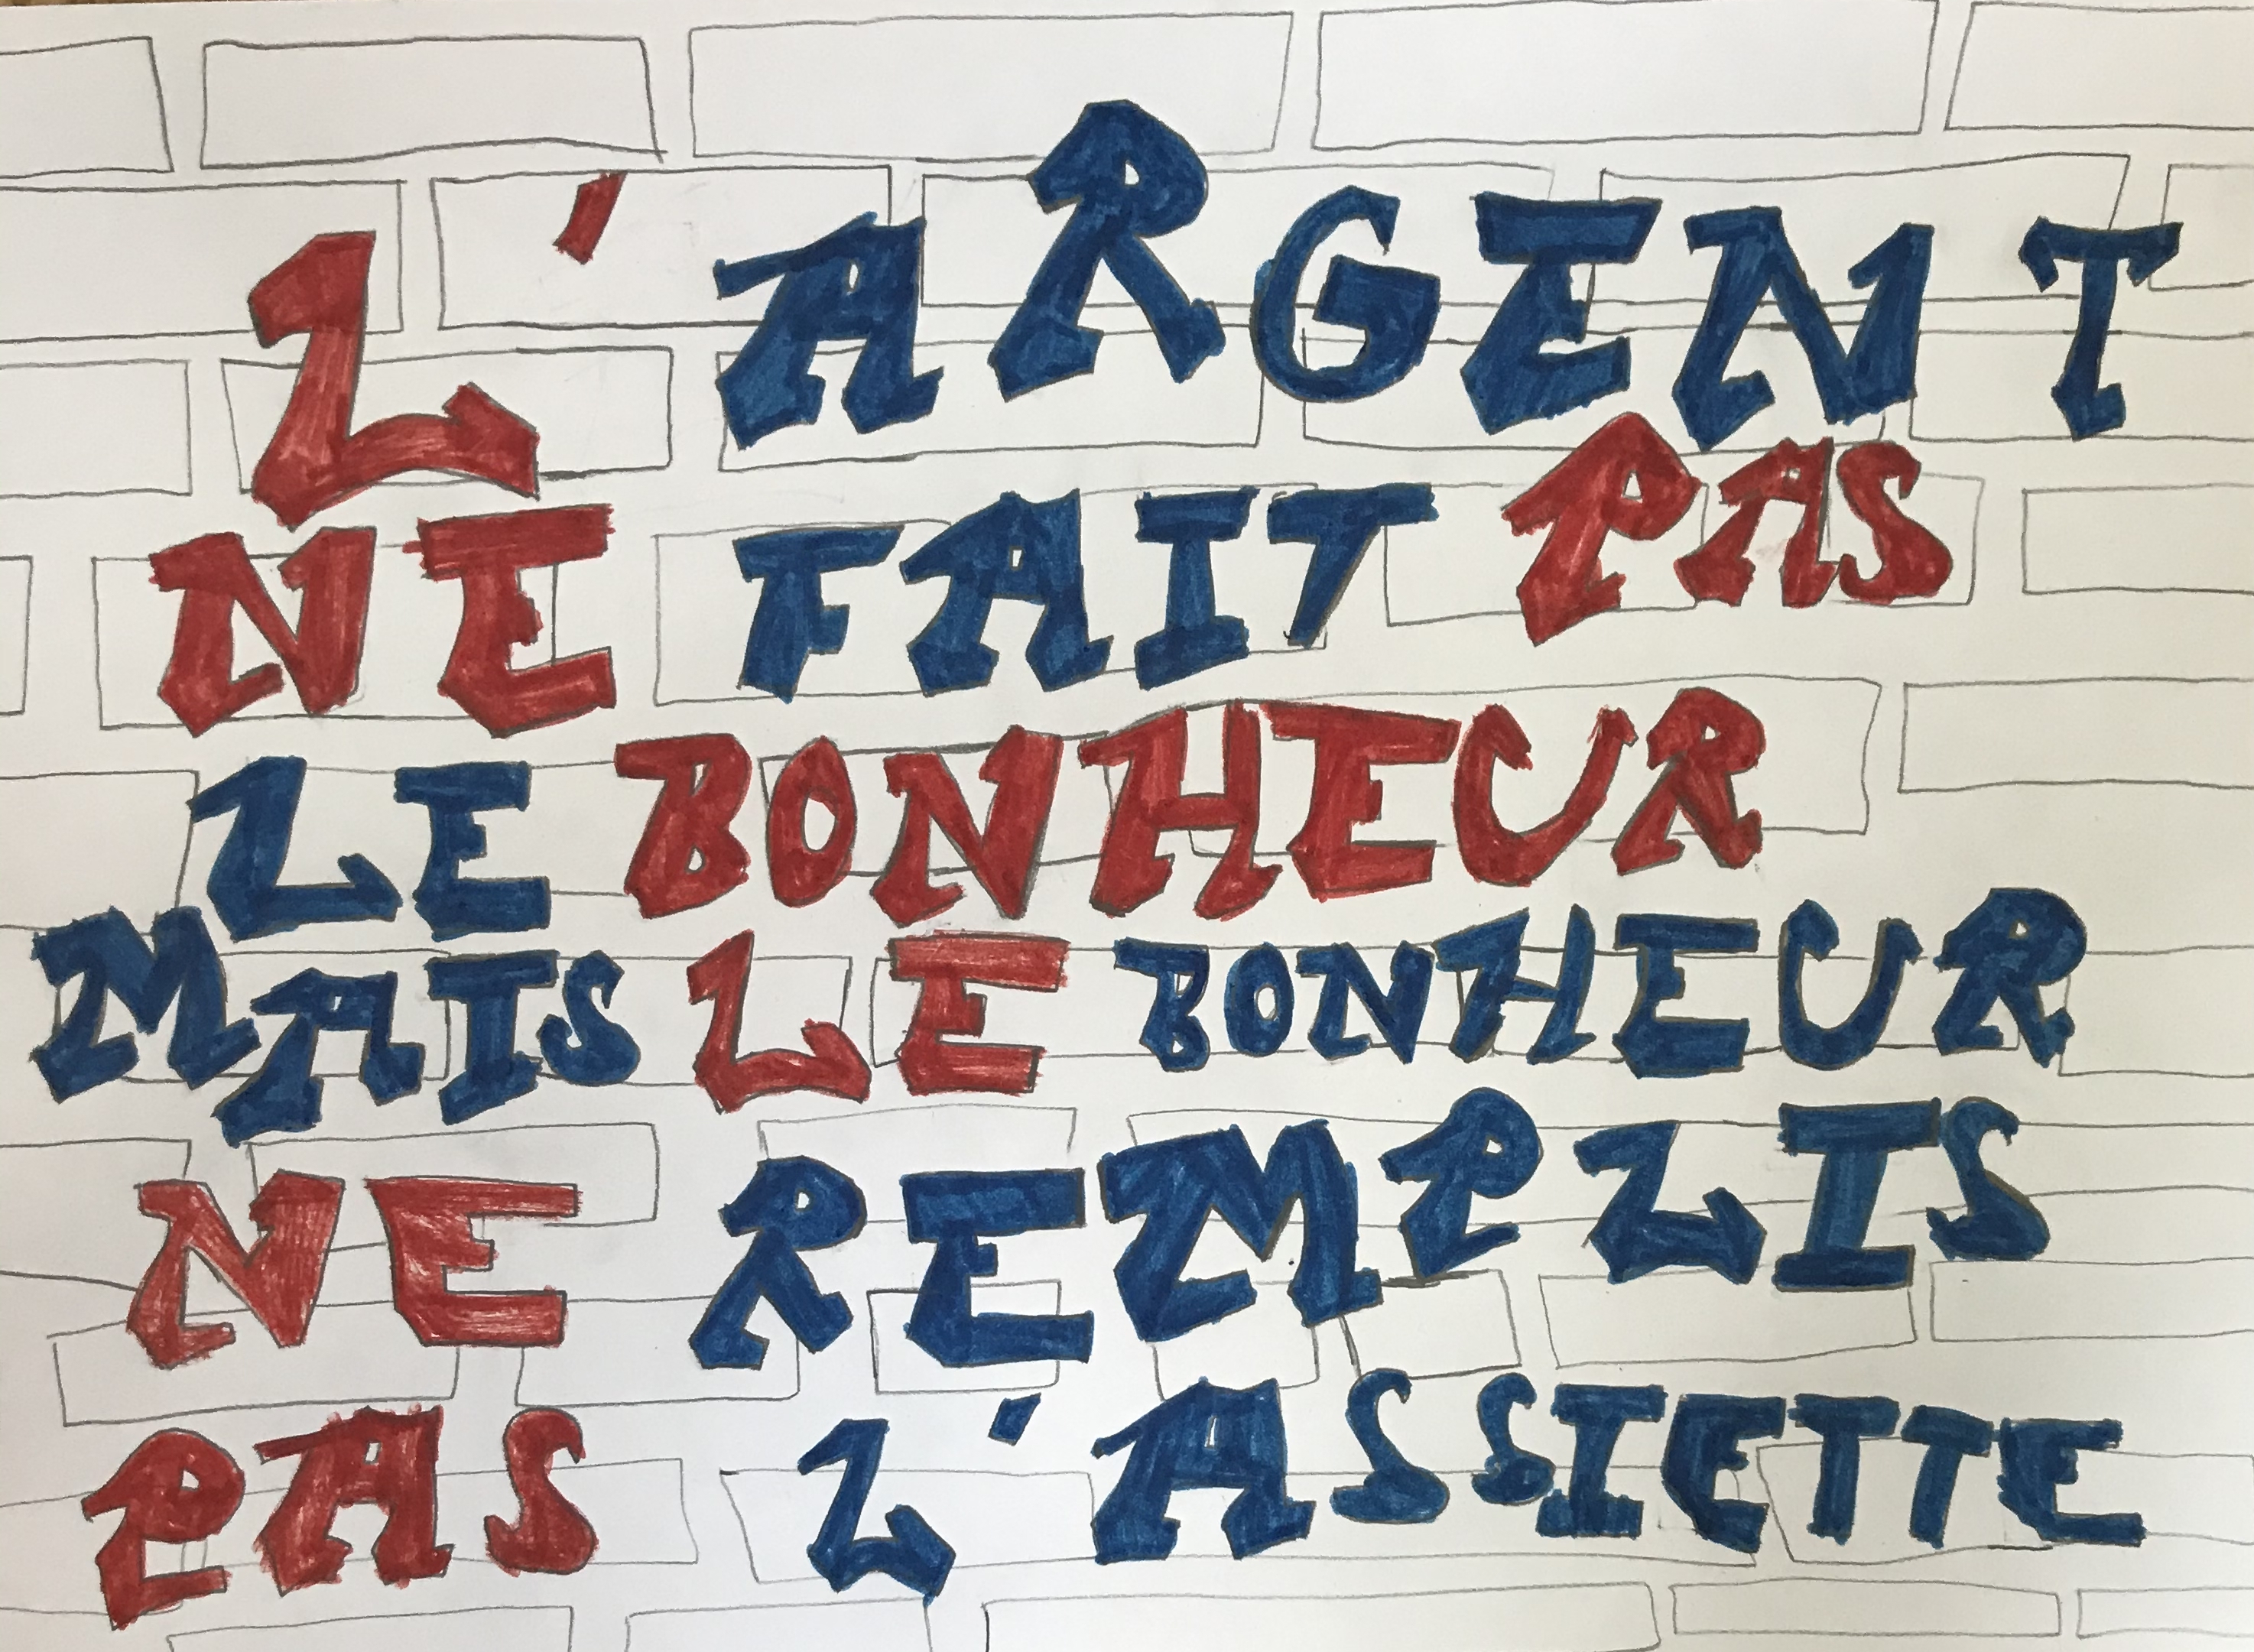 L'ARGENT
NE FAIT PAS
LE BONHEUR
MAIS LE BONHEUR
NE REMPLIS
PAS L'ASSIETTE